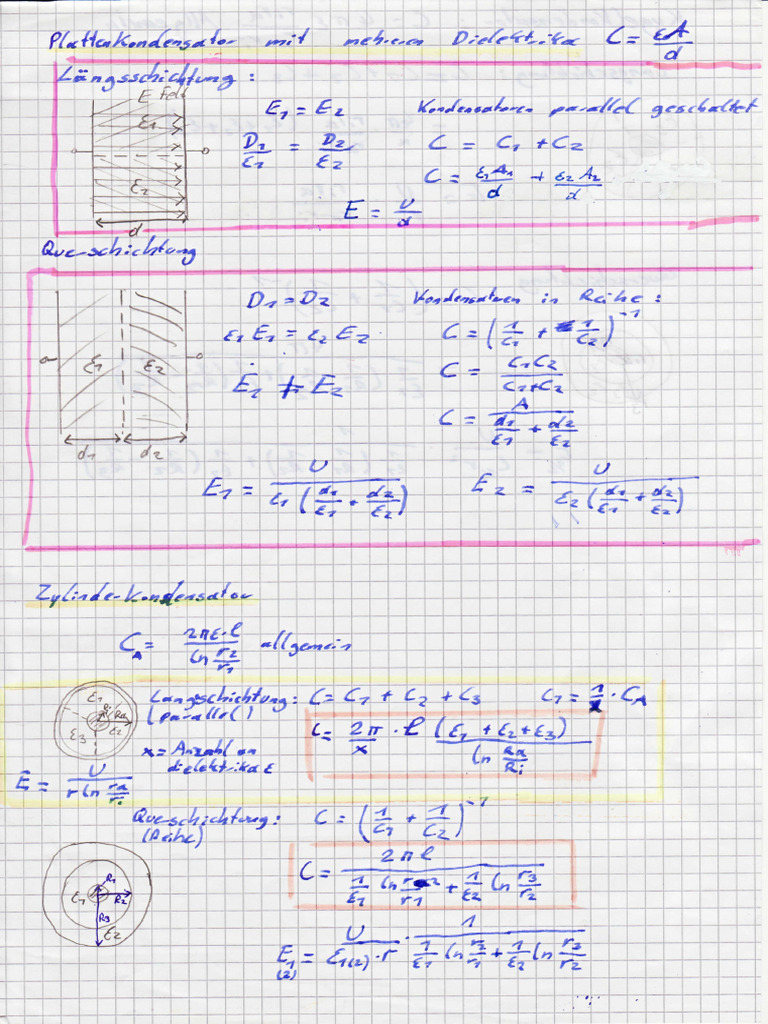 Plattenkondensator mit mehreren Dielektrika C = εA/d
Längsschichtung :
E Feld
ε1
ε2
d
E1 = E2
D1/ε1 = D2/ε2
E = U/d
Kondensatoren parallel geschaltet
C = C1 + C2
C = ε1A1/d + ε2A2/d
Querschichtung
ε1 ε2
d1 d2
D1 = D2
ε1 E1 = ε2 E2
E1 ≠ E2
Kondensatoren in Reihe :
C = (1/C1 + 1/C2)^-1
C = C1C2/(C1+C2)
C = A/(d1/ε1 + d2/ε2)
E1 = U/(ε1 (d1/ε1 + d2/ε2))
E2 = U/(ε2 (d1/ε1 + d2/ε2))
Zylinder-Kondensator
CA = 2πε·l/(ln r2/r1) allgemein
ε1
Ri Ra
ε2
ε3
Langsschichtung: C = C1 + C2 + C3 C1 = 1/x · CA
(parallel)
x = Anzahl an
dielektrika ε
C = 2π/x · l (ε1 + ε2 + ε3)/(ln Ra/Ri)
E = U/(r ln ra/ri)
Querschichtung: C = (1/C1 + 1/C2)^-1
(Reihe)
R1
ε1
R2
R3
ε2
C = 2πl/(1/ε1 ln r2/r1 + 1/ε2 ln r3/r2)
E1(2) = U/(ε1(2)·r) · 1/(1/ε1 ln r2/r1 + 1/ε2 ln r3/r2)